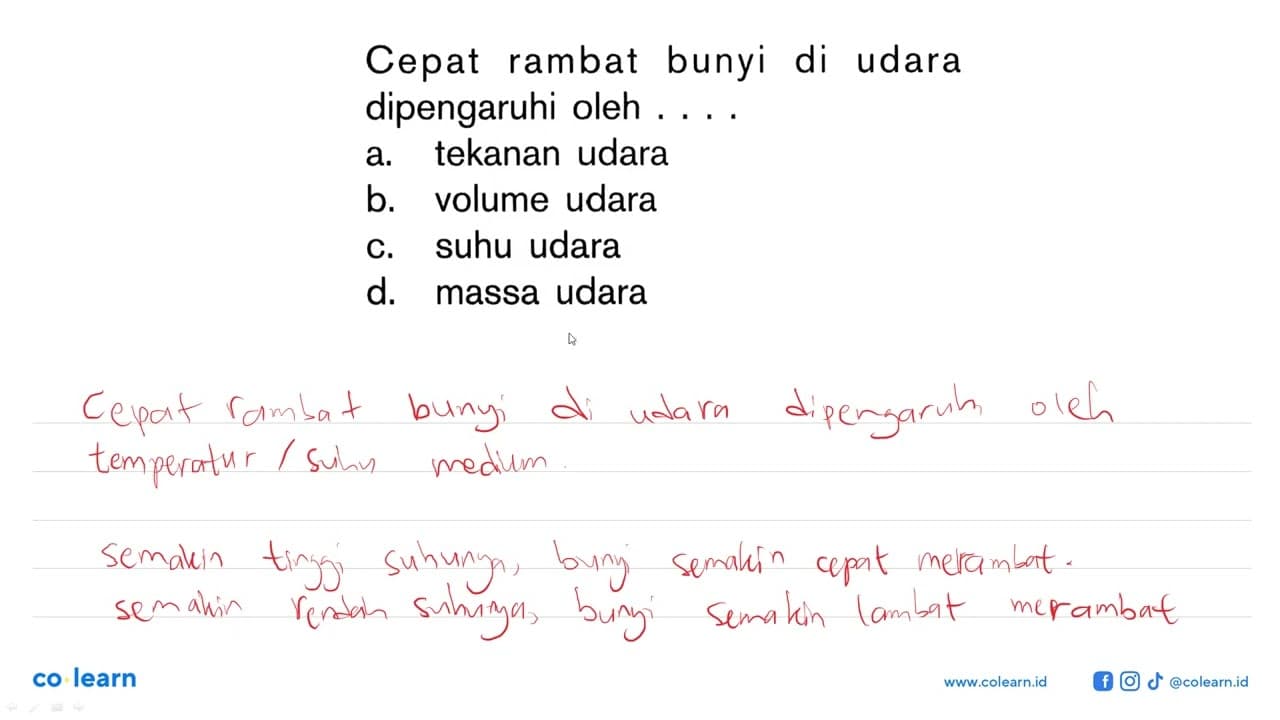 Cepat rambat bunyi di udara
dipengaruhi oleh . . . .
a. tekanan udara
b. volume udara
c. suhu udara
d. massa udara
Cepat rambat bunyi di udara dipengaruhi oleh
temperatur / suhu medium.
semakin tinggi suhunya, bunyi semakin cepat merambat.
semakin rendah suhunya, bunyi semakin lambat merambat
co learn
www.colearn.id
@colearn.id